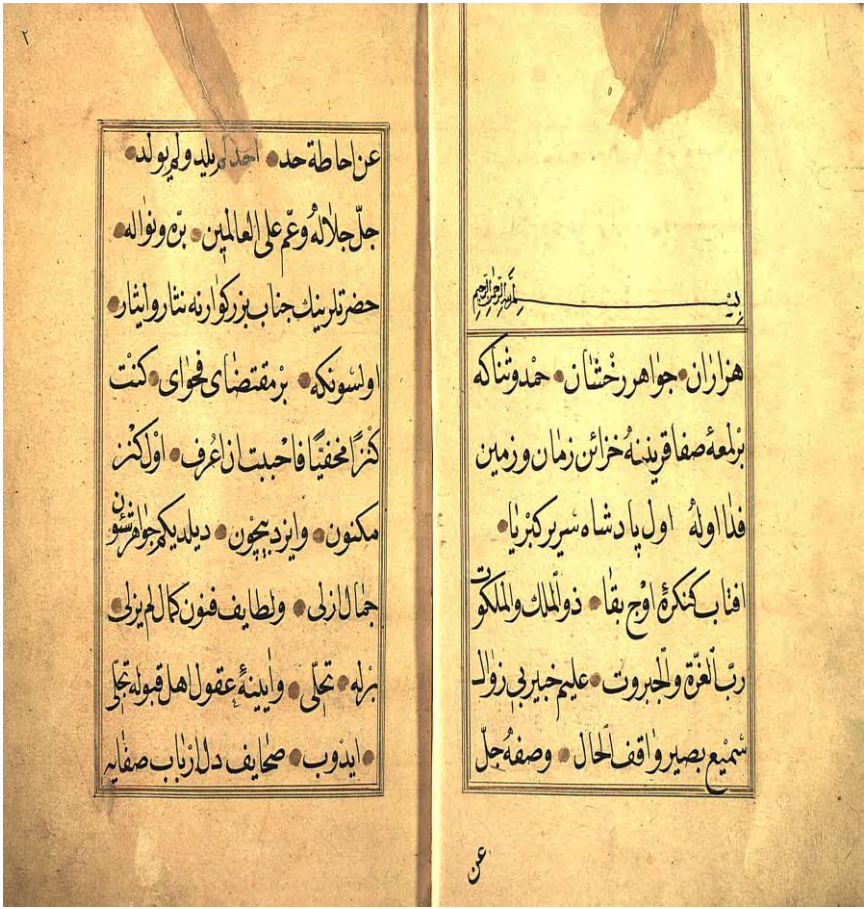 بسم الله الرحمن الرحيم
هزاران جواهر رخشان حمد و ثنا كه
بر لمعۀ صفا قرینه خزائن زمان و زمین
فدا اوله اول پادشاه سریر كبریا
افتاب كنكرۀ اوج بقا ذو الملك والملكوت
ربّ العزّة والجبروت علیم خبیر بی زوال
سمیع بصیر واقف الحال وصفه جلّ
عن
٢
عن احاطة حد احد لم یلید ولم یولد
جلّ جلاله وعّم علی العالمین برّه ونواله
حضرتلرینك جناب بزركوارنه نثار و ایثار
اولسونكه بر مقتضای فحوای كنت
كنزًا مخفیًّا فاحببت ان اعرف اول كنز
مكنون وایزد بیچون دیلدیكم جواهر شئون
جمال ازلی ولطایف فنون كمال لم یزلی
برله تحلّی وایینۀ عقول اهل قبوله تجلّی
ایدوب صحایف دل ارباب صفایه